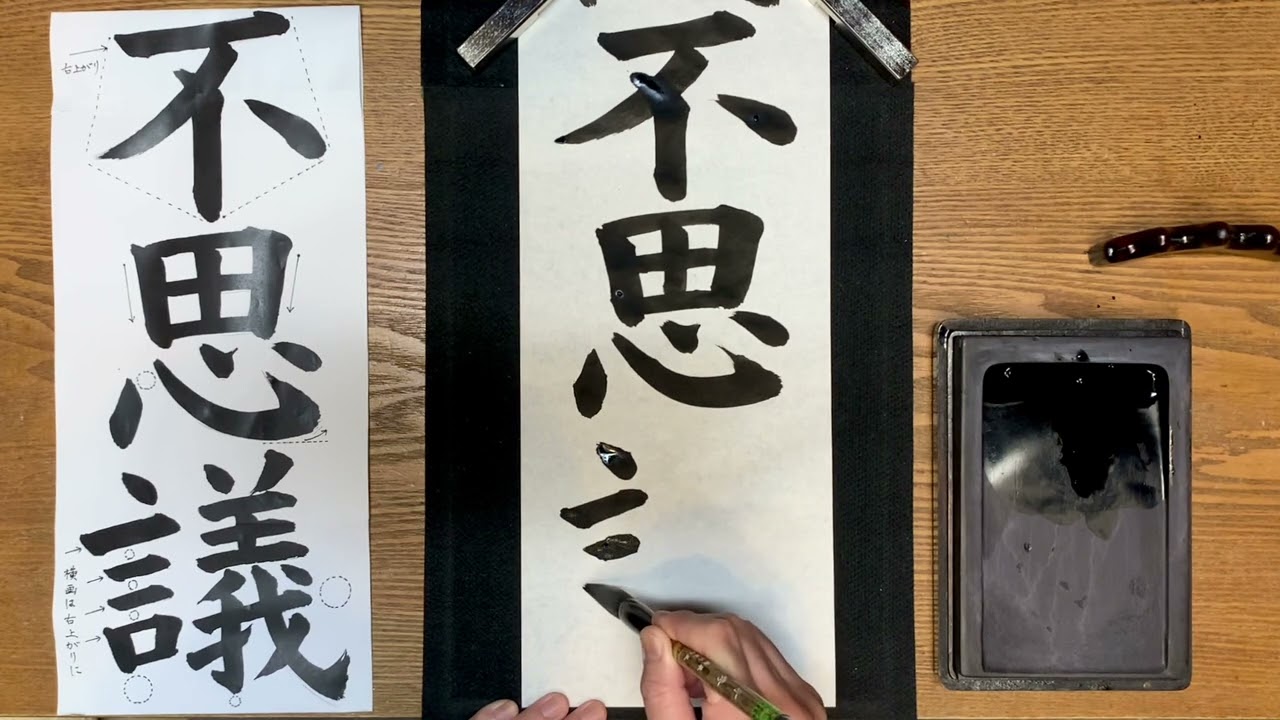 不思議
右上がり
横画は右上がりに
不思